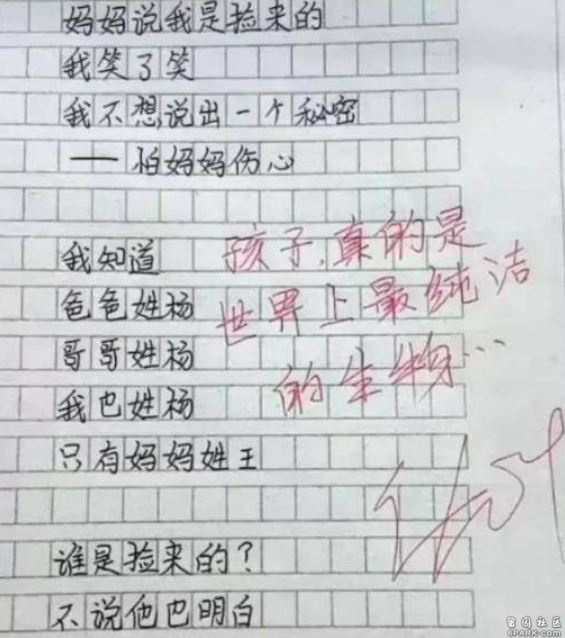 妈妈说我是捡来的
我笑了笑
我不想说出一个秘密
——怕妈妈伤心
我知道
爸爸姓杨
哥哥姓杨
我也姓杨
只有妈妈姓王
谁是捡来的?
不说他也明白
孩子,真的是
世界上最纯洁
的生物…
6PARK.COM